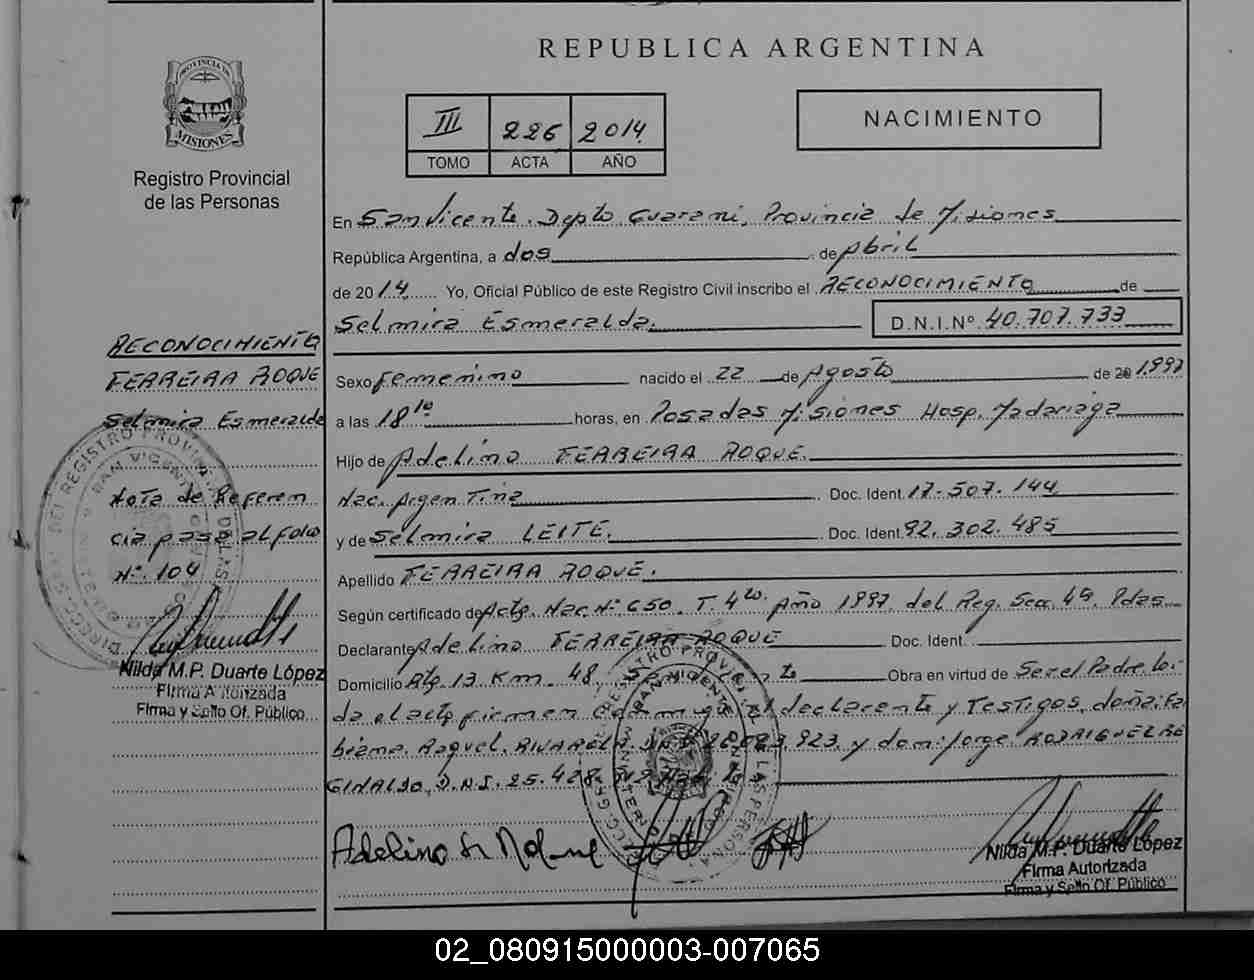 REPUBLICA ARGENTINA
PROVINCIA DE
MISIONES
Registro Provincial
de las Personas
III 226 2014
TOMO ACTA AÑO
NACIMIENTO
En San Vicente. Depto Guarani, Provincia de Misiones
República Argentina, a dos de Abril
de 2014 Yo, Oficial Público de este Registro Civil inscribo el RECONOCIMIENTO de
Selmira Esmeralda. D.N.I.Nº 40.707.733
Sexo Femenino nacido el 22 de Agosto de 20 1997
a las 18 10 horas, en Posadas Misiones Hosp. Madariaga
Hijo de Adelino FERREIRA ROQUE.
Nac. Argentina Doc. Ident. 17.507.144
y de Selmira LEITE. Doc. Ident. 92.302.485
Apellido FERREIRA ROQUE.
Según certificado de Acta Nac. Nº 650. T. 4to Año 1997. del Reg. Sec. 4ª. Pdas
Declarante Adelino FERREIRA ROQUE Doc. Ident.
Domicilio Rta 13 Km. 48, San Obra en virtud de Ser el Padre. Lei
da el acta firman conmigo el declarante y Testigos, doña: Fa
biana Raquel RIVAROLA 923. y don: Jorge RODRIGUEZ RE
GINALDO, D.N.I. 25.428
Adelino
Nilda M.P. Duarte López
Firma Autorizada
Firma y Sello Of. Público
RECONOCIMIENTO
FERREIRA ROQUE
Selmira Esmeralda
Nota de Referen
cia pasa al folio
Nº. 104
Nilda M.P. Duarte López
Firma Autorizada
Firma y Sello Of. Público
02_080915000003-007065